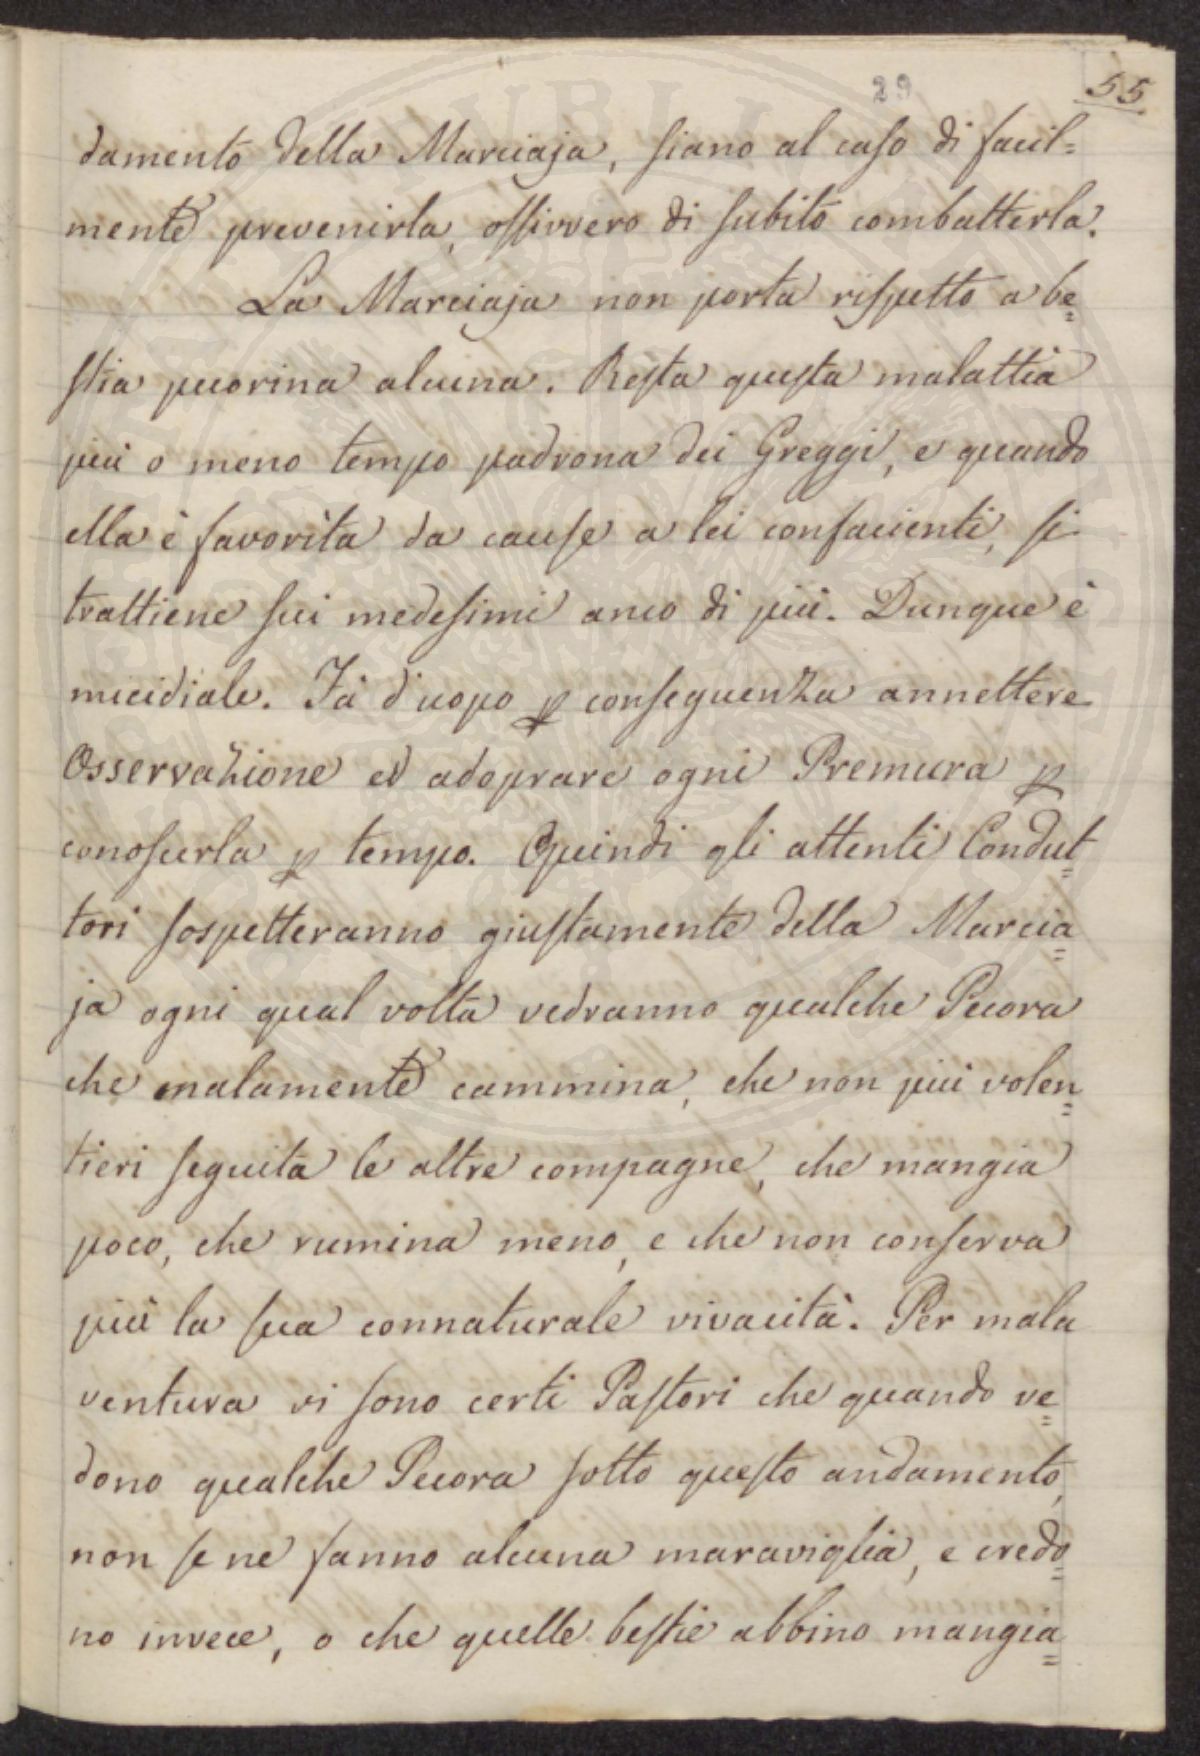 29
55
damento della Marciaja, siano al caso di facil=
mente prevenirla, ossivvero di subito combatterla.
La Marciaja non porta rispetto a be=
stia pecorina alcuna. Resta questa malattia
più o meno tempo padrona dei Greggi, e quando
ella è favorita da cause a lei confacienti, si
trattiene sui medesimi anco di più. Dunque è
micidiale. Fà d'uopo ꝑ conseguenza annettere
Osservazione ed adoprare ogni Premura ꝑ
conoscerla ꝑ tempo. Quindi gli attenti Condut=
tori sospetteranno giustamente della Marcia=
ja ogni qual volta vedranno qualche Pecora
che malamente cammina, che non più volen=
tieri seguita le altre compagne, che mangia
poco, che rumina meno, e che non conserva
più la sua connaturale vivacità. Per mala
ventura vi sono certi Pastori che quando ve=
dono qualche Pecora sotto questo andamento,
non se ne fanno alcuna maraviglia, e credo=
no invece, o che quelle bestie abbino mangia=